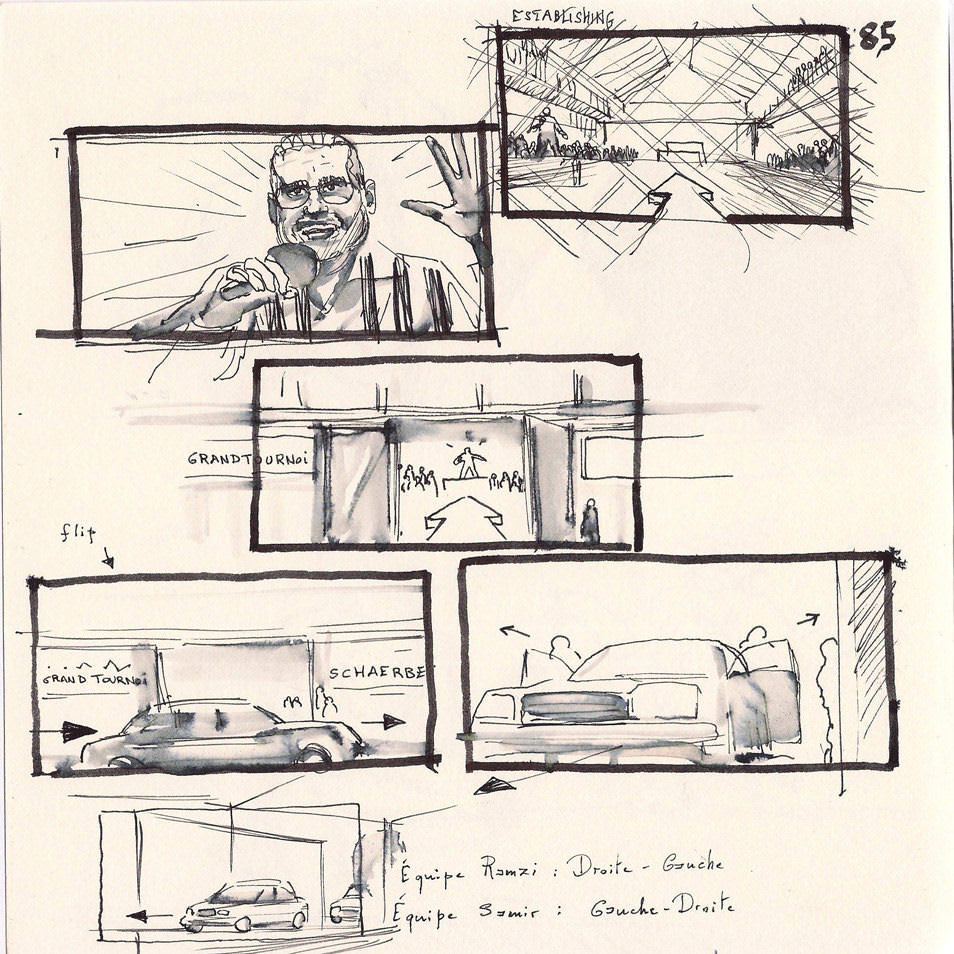 ESTABLISHING
85
GRAND TOURNOI
flip
GRAND TOURNOI
SCHAERBE
Équipe Ramzi : Droite - Gauche
Équipe Samir : Gauche - Droite